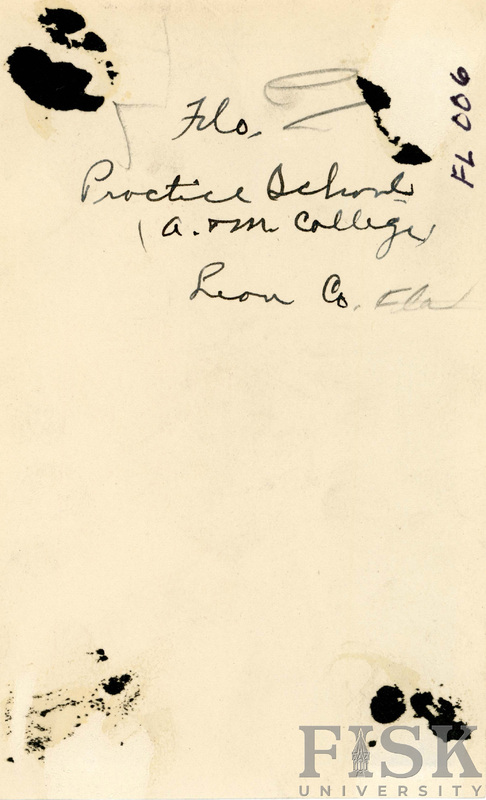 Fla.
FL 006
Practice School
(A. & M. College)
Leon Co. Fla
FISK
UNIVERSITY